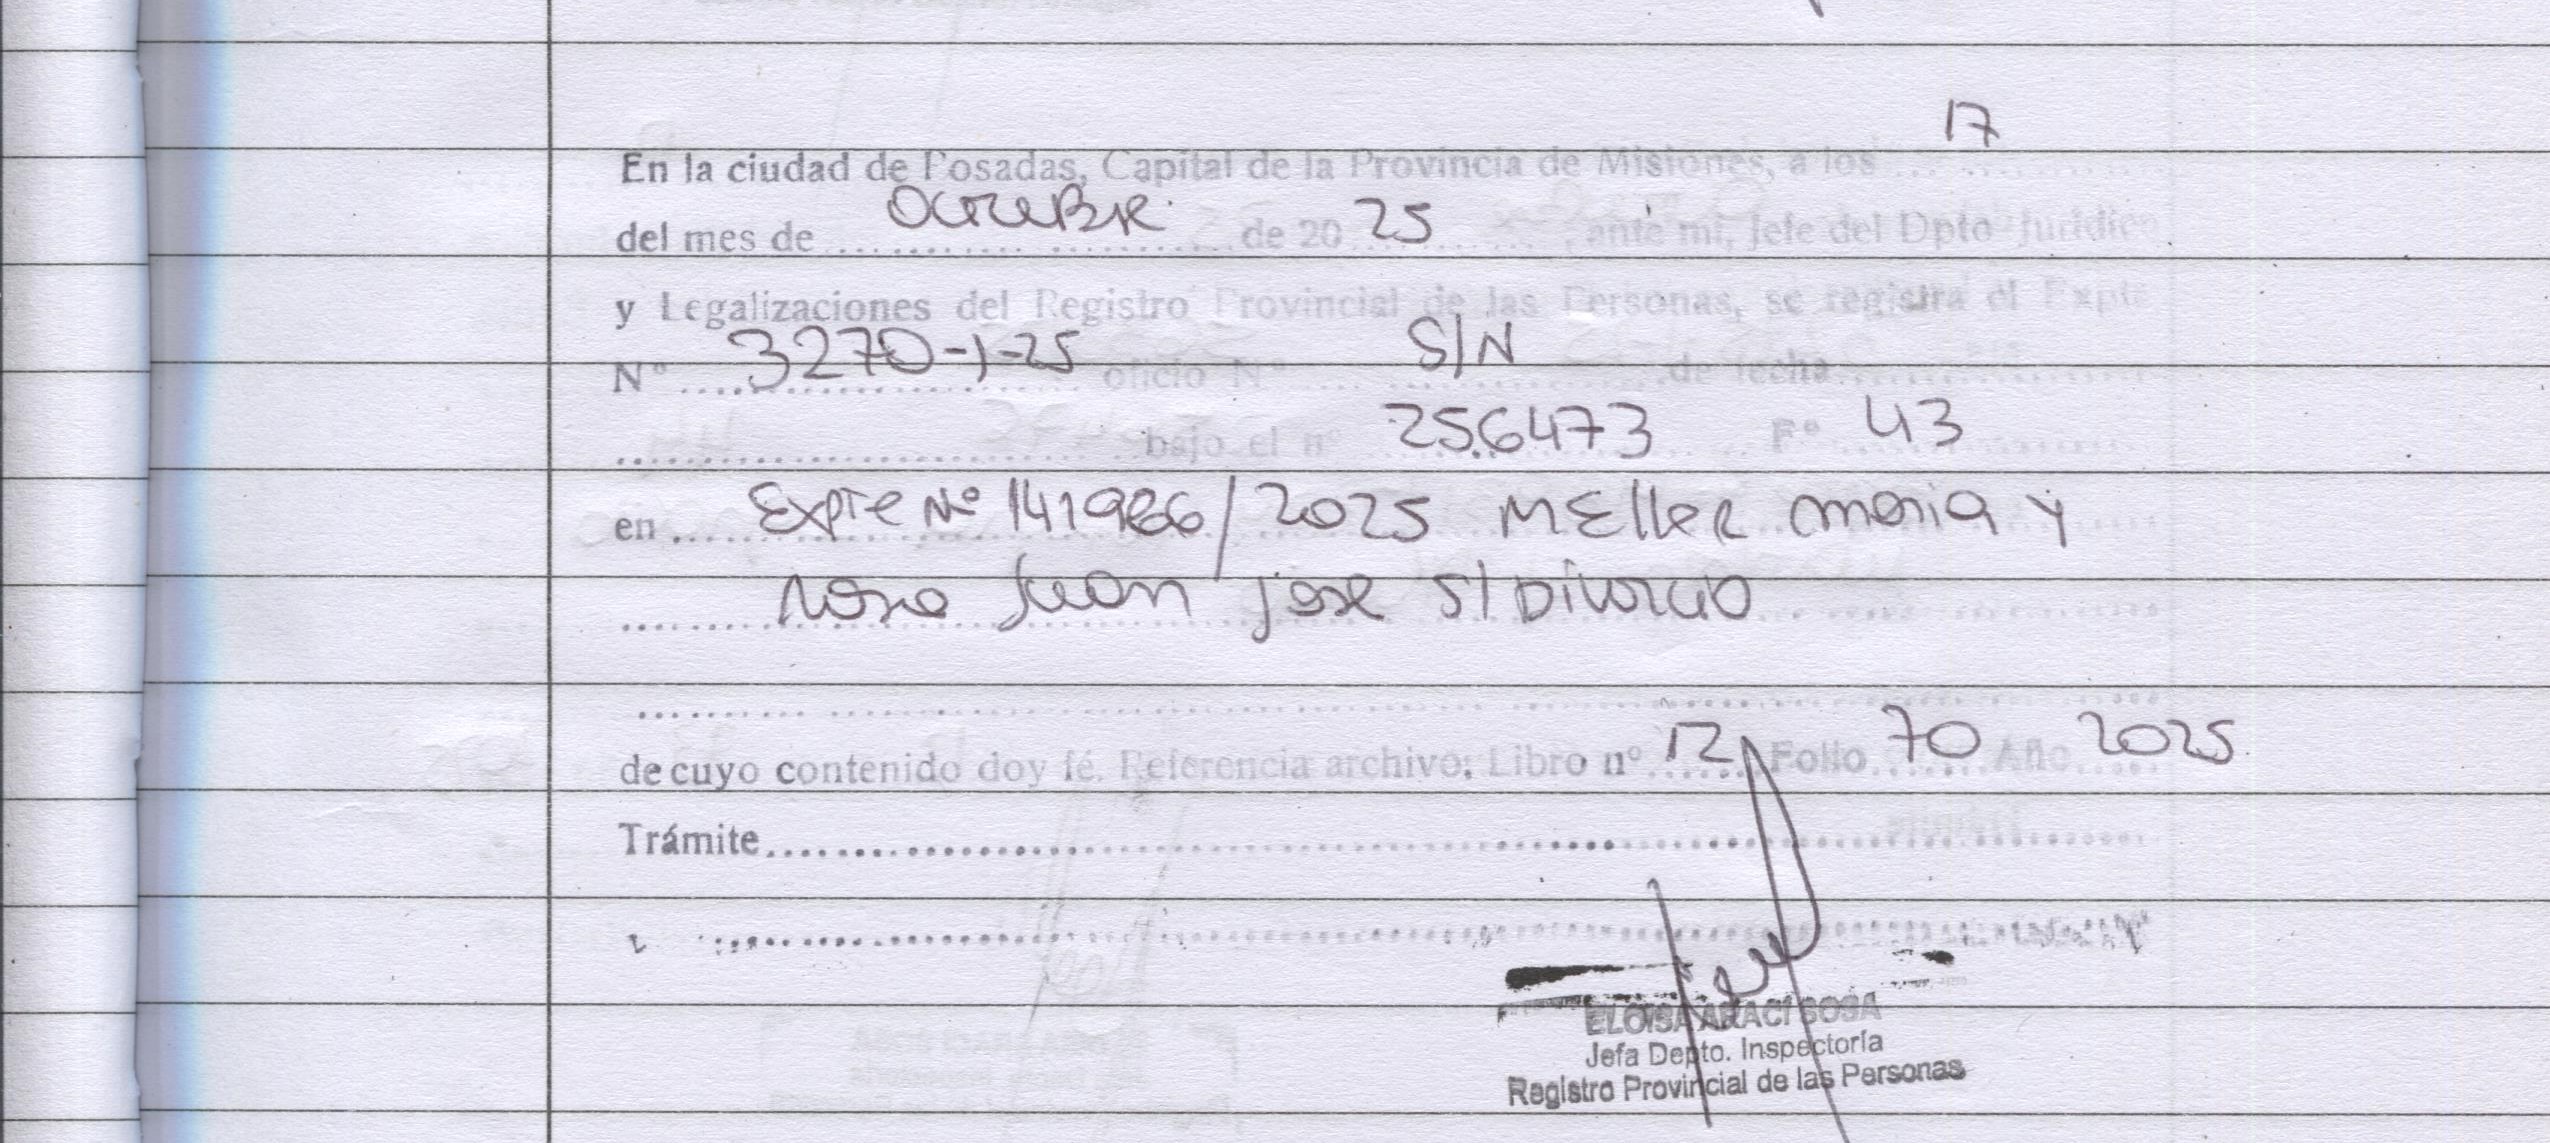 17
En la ciudad de Posadas, Capital de la Provincia de Misiones, a los ...
del mes de ... Octubre ... de 20 25 ..., ante mi, Jefe del Dpto Jurídico
y Legalizaciones del Registro Provincial de las Personas, se registra el Expte
N° ... 3270-J-25 oficio N° S/N de fecha ...
... bajo el n° 256473 F° 43
en ... Expte Nº 141986/2025 Meller Maria y
Juan Jose S/ Divorcio
de cuyo contenido doy fé. Referencia archivo: Libro n° 12 Folio 70 Año 2025
Trámite ...
ELOISA ARACI SOSA
Jefa Depto. Inspectoría
Registro Provincial de las Personas